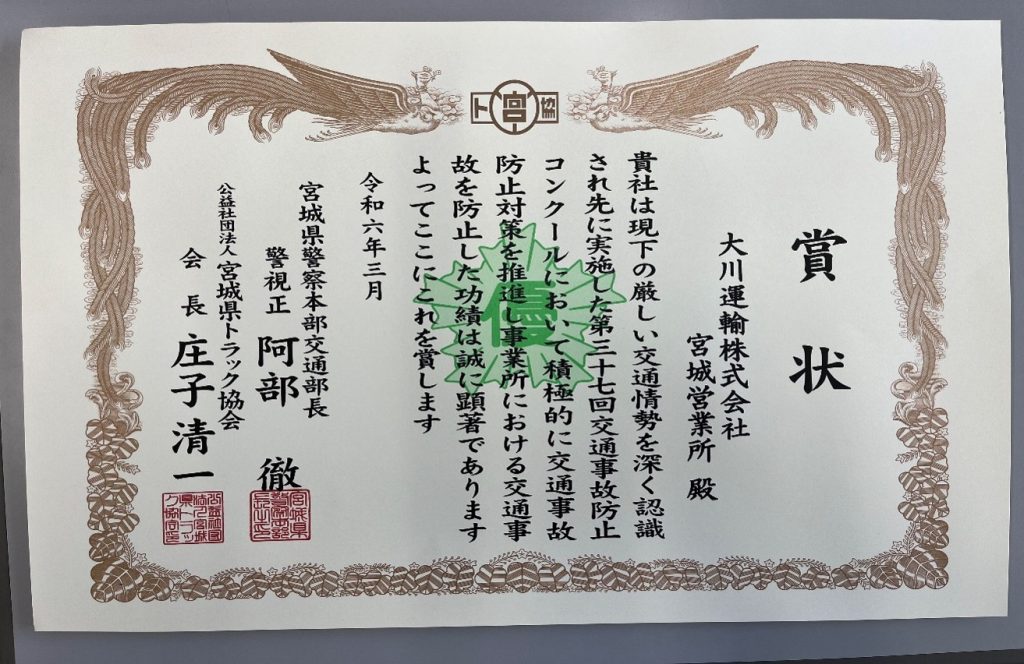 ト宮協
賞状
大川運輸株式会社
宮城営業所 殿
貴社は現下の厳しい交通情勢を深く認識
され先に実施した第三十七回交通事故防止
コンクールにおいて積極的に交通事故
防止対策を推進し事業所における交通事
故を防止した功績は誠に顕著であります
よってここにこれを賞します
優
令和六年三月
宮城県警察本部交通部長
警視正 阿部 徹
公益社団法人 宮城県トラック協会
会長 庄子清一